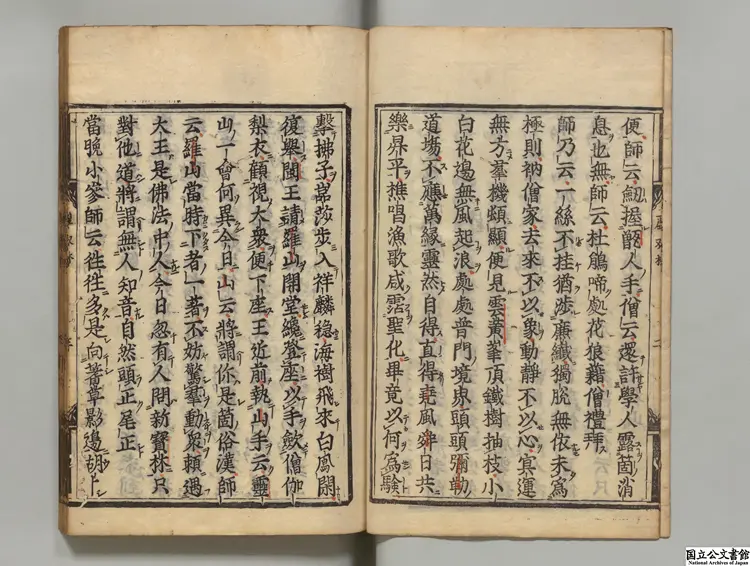 便師云劔握人手僧云還許學人露箇消
息也無師云杜鵑啼處花狼藉僧禮拜
師乃云一絲不挂猶渉廉纖獨脱無依未爲
極則衲僧家去來不以象動靜不以心冥運
無方羣機頗顯便見雲黄峯頂鐵樹抽枝小
白花邊無風起浪處處普門境界頭頭彌勒
道塲不應萬縁靈然自得直得堯風舜日共
樂昇平樵唱漁歌咸霑聖化畢竟以何爲驗
擊拂子莎步入祥麟穩海樹飛來白鳳閑
復舉閩王請羅山開堂纔登座以手歛僧伽
梨衣顧視大衆便下座王近前執山手云靈
山一會何異今日山云將謂你是箇俗漢師
云羅山當時下者一著不妨驚羣動衆頼遇
大王是佛法中人今日忽有人開新寶林只
對他道將謂無人知音自然頭正尾正
當晩小參師云徃徃多是向蓍草影邊胡卜
国立公文書館
National Archives of Japan